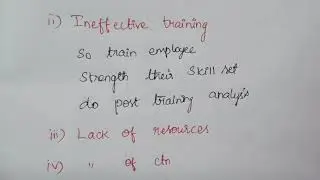 ii) Ineffective training
So train employee
Strength their skill set
do post training analysis
iii) Lack of resources
iv) " of ctn